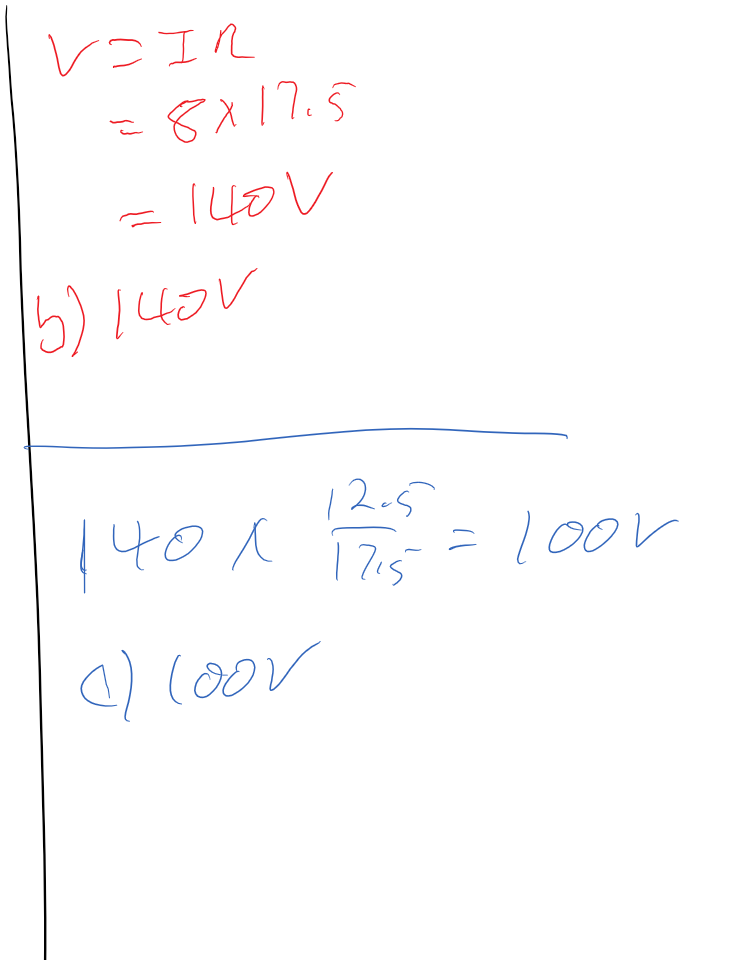 V = IR
= 8 x 17.5
= 140V
b) 140V
140 x 12.5/17.5 = 100V
a) 100V